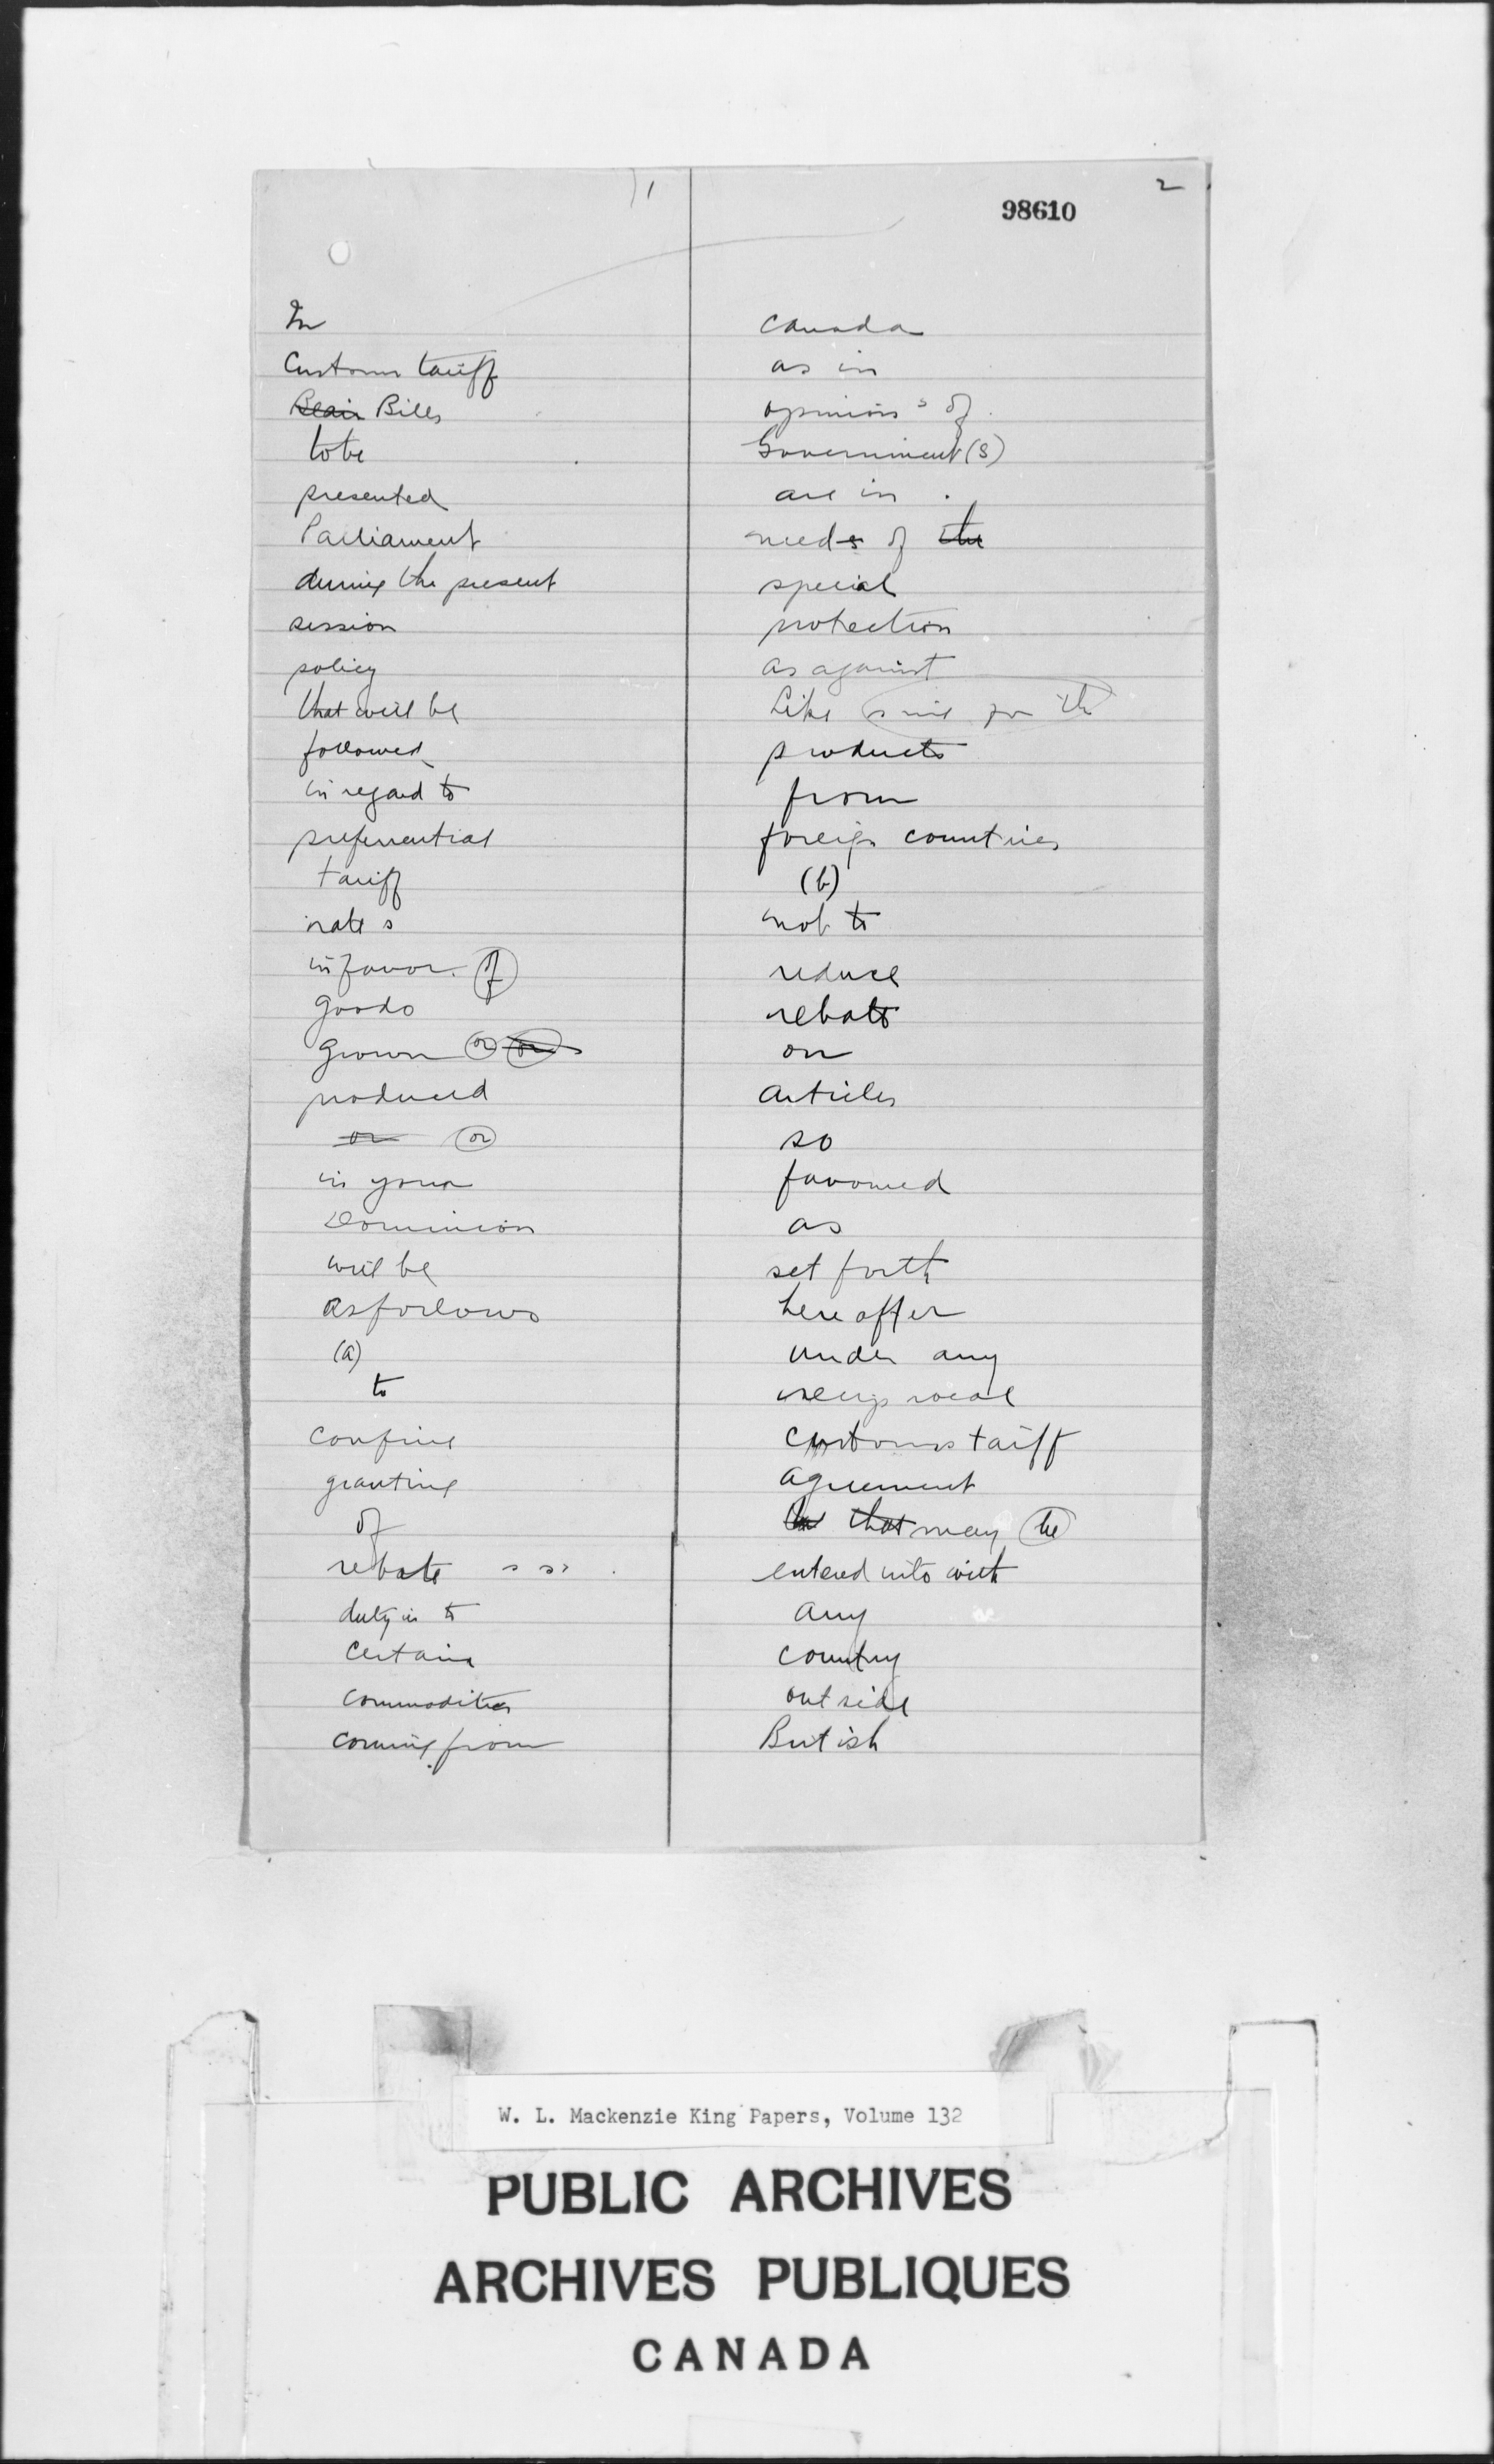 1
In
Customs tariff
Blair Bills
to be
presented
Parliament
during the present
session
policy
that will be
followed
in regard to
preferential
tariff
rates
in favor of
goods
grown or or
produced
or or
in your
Dominion
will be
as follows
(a)
to
confine
granting
of
rebate
duty in to
certain
commodities
coming from
2
98610
Canada
as in
opinions of
Government(s)
are in
needs of the
special
protection
as against
like
products
from
foreign countries
(b)
not to
reduce
rebate
on
articles
so
favoured
as
set forth
here after
under any
reciprocal
customs tariff
agreement
that may be
entered into with
any
country
outside
British
W. L. Mackenzie King Papers, Volume 132
PUBLIC ARCHIVES
ARCHIVES PUBLIQUES
CANADA